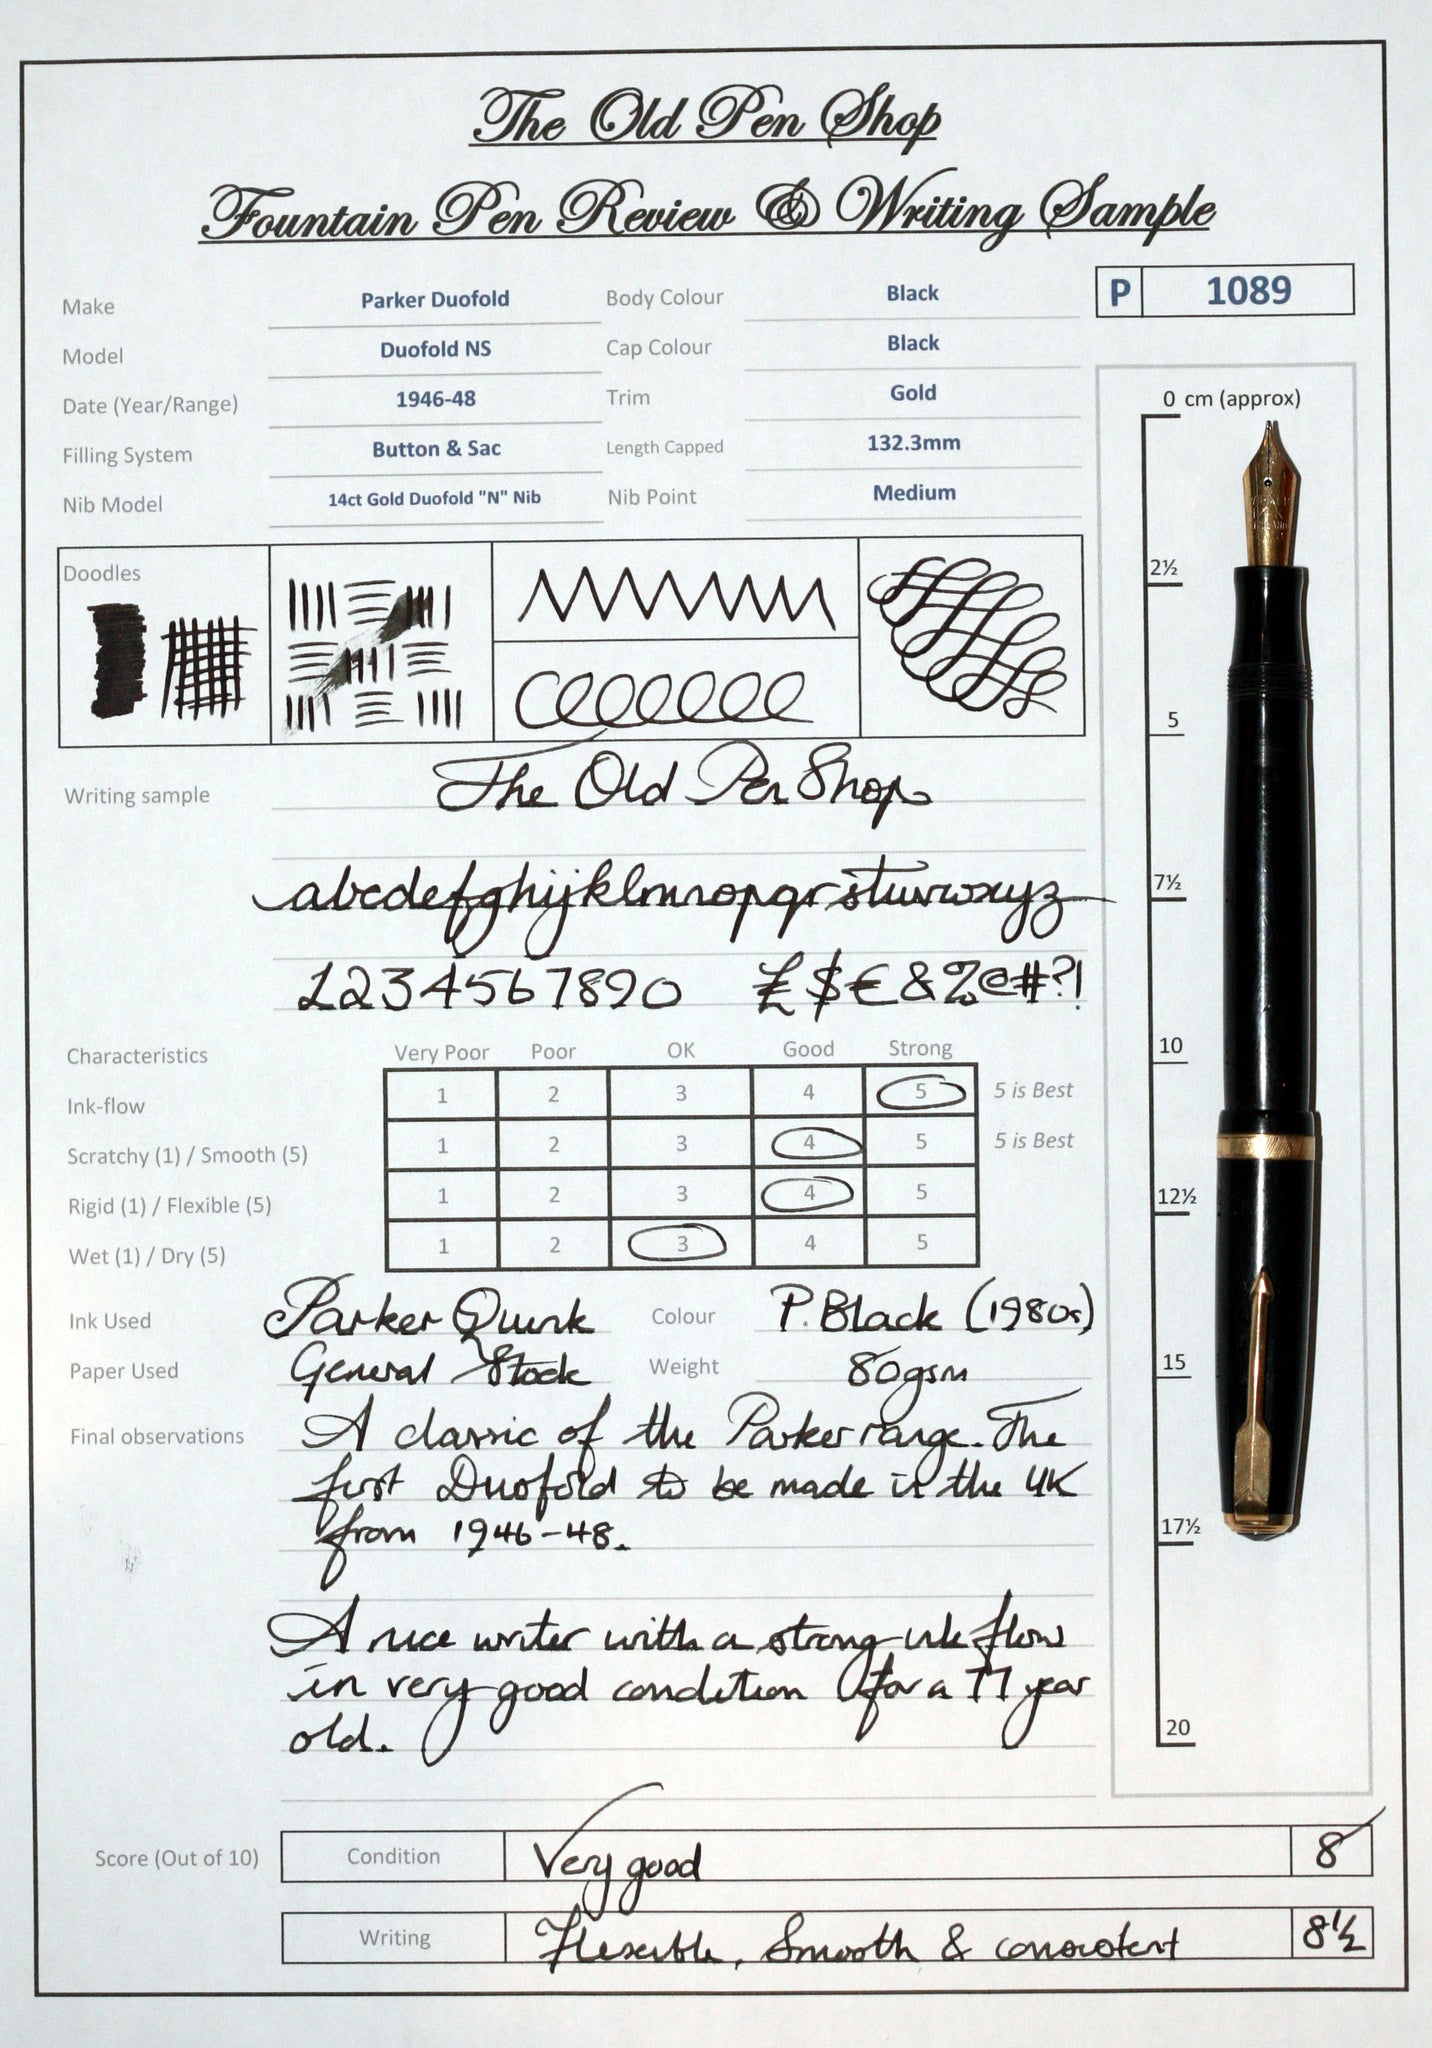 The Old Pen Shop
Fountain Pen Review & Writing Sample
P 1089
Make Parker Duofold Body Colour Black
Model Duofold NS Cap Colour Black
Date (Year/Range) 1946-48 Trim Gold
Filling System Button & Sac Length Capped 132.3mm
Nib Model 14ct Gold Duofold "N" Nib Nib Point Medium
0 cm (approx)
2½
5
7½
10
12½
15
17½
20
Doodles
Writing sample The Old Pen Shop
abcdefghijklmnopqrstuvwxyz
1234567890 £$€&%@#?!
Characteristics Very Poor Poor OK Good Strong
Ink-flow 1 2 3 4 5 5 is Best
Scratchy (1) / Smooth (5) 1 2 3 4 5 5 is Best
Rigid (1) / Flexible (5) 1 2 3 4 5
Wet (1) / Dry (5) 1 2 3 4 5
Ink Used Parker Quink Colour P. Black (1980s)
Paper Used General Stock Weight 80gsm
Final observations A classic of the Parker range. The
first Duofold to be made in the UK
from 1946-48.
A nice writer with a strong ink flow
in very good condition for a 77 year
old.
Score (Out of 10) Condition Very good 8
Writing Flexible, Smooth & consistent 8½